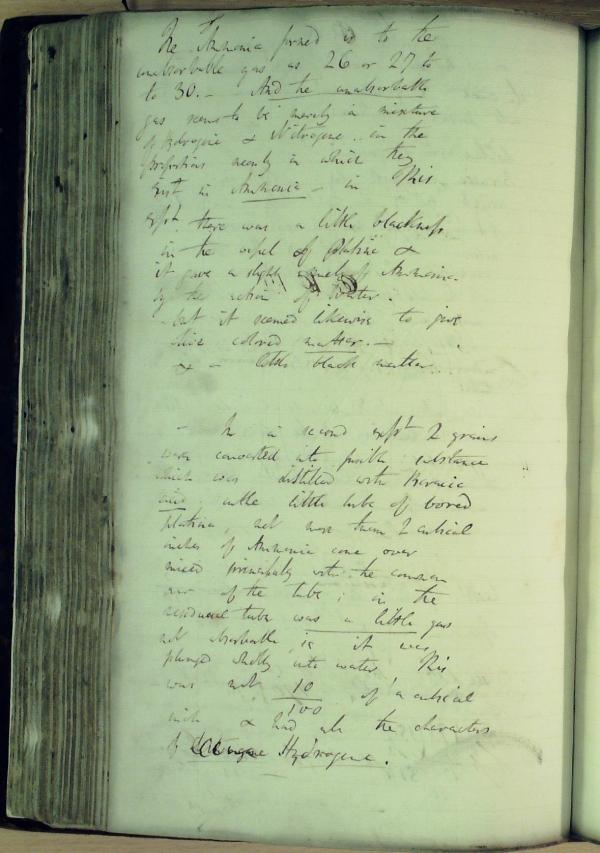 The Ammonia formed is to the
unabsorbable gas as 26 or 27 to
to 30. - And the unabsorbable
gas seems to be merely a mixture
of Hydrogene & Nitrogene in the
proportions nearly in which they
exist in Ammonia - in this
expt there was a little blackness
in the vessel of platina &
it gave a slight smell of Ammonia
by the action of Water.
- but it seemed likewise to give
olive colored matter. -
& - little black matter.
- In a second expt 2 grains
were converted into fusible substance
which was distilled with boracic
acid in the little tube of bored
platina, not more than 2 cubical
inches of Ammonia came over
mixed principally with the common
air of the tube; in the
residual tube was a little gas
not absorbable is it was
plunged wholly into water This
was not 10/100 of a cubical
inch & had all the characters
of Hydrogene.